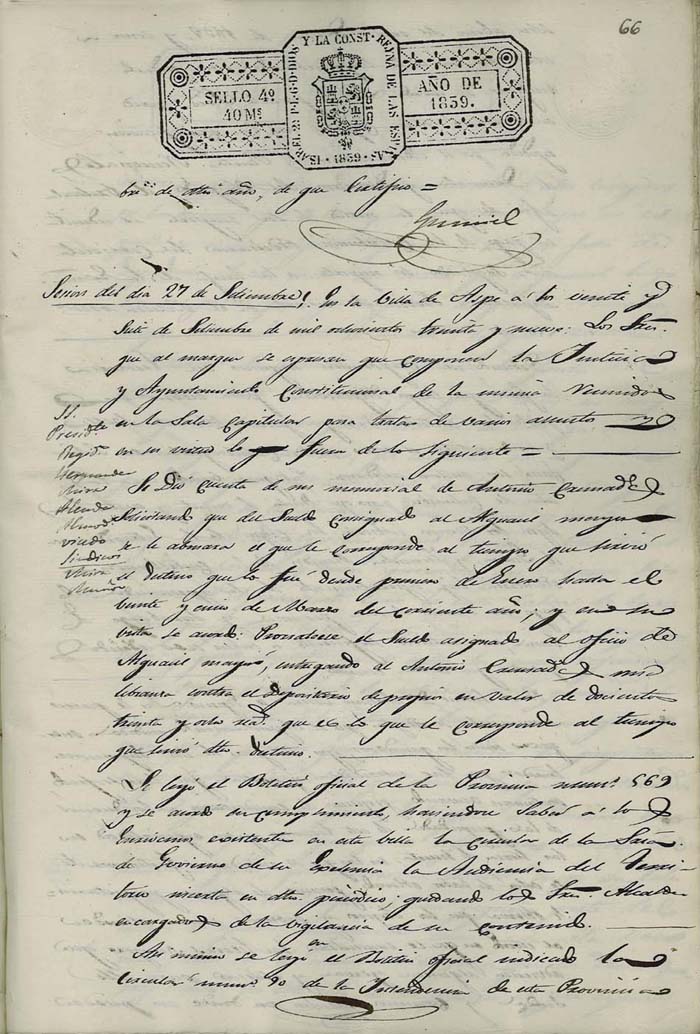 66
ISABEL 2ª P.L.G.D.DIOS Y LA CONST. REYNA DE LAS ESPAÑAS
SELLO 4º
40 Ms
AÑO DE
1839.
1839
bre de dho año, de que Certifico =
Sesion del dia 27 de Setiembre En la Villa de Aspe á los veinte y
Siete de Setiembre de mil ochocientos treinta y nueve: Los Sres.
que al margen se espresan que componen la Justicia
y Ayuntamiento Constitucional de la misma reunidos
en la Sala Capitular para tratar de varios asuntos y
en su virtud lo fueron de lo siguiente =
SS.
Presidte
Regidr
Hernandez
Mira
Almodo
var
Sindicos
Mira
Se Dió cuenta de un memorial de Antonio
Solicitando que del Sueldo consignado al Alguacil mayor
se le abonara el que le corresponde al tiempo que sirvió
el destino que lo fué desde primero de Enero hasta el
veinte y cinco de Marzo del corriente año; y en su
vista se acordó: Prorratearse el Sueldo asignado al oficio de
Alguacil mayor, entregando al Antonio una
libranza contra el depositario de propios en valor de docientos
treinta y ocho reas. que es lo que le corresponde al tiempo
que sirvió dho. destino.
Se leyó el Boletin oficial de la Provincia numº 569
y se acordó su cumplimiento, haciendose Saber á los
Escribanos existentes en esta villa la circular de la Secria.
de Govierno de su Excelencia la Audiencia del Terri-
torio inserta en dho. periodico; quedando los Sres. Alcaldes
encargados de la vigilancia de su contenido.
Asi mismo se leyó en el Boletin oficial indicado la
Circular numº 90 de la Intendencia de esta Provincia